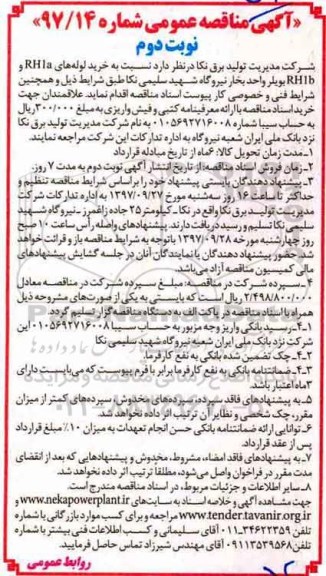 «آگهی مناقصه عمومی شماره ۹۷/۱۴»
نوبت دوم
شرکت مدیریت تولید برق نکا در نظر دارد نسبت به خرید لوله‌های RH1a و
RH1b بویلر واحد بخار نیروگاه شهید سلیمی نکا طبق شرایط ذیل و همچنین
شرایط فنی و خصوصی کار پیوست اسناد مناقصه اقدام نماید. علاقمندان جهت
خرید اسناد مناقصه با ارائه معرفینامه کتبی و فیش واریزی به مبلغ ۳۰۰/۰۰۰ریال
به حساب سیبا شماره ۰۱۰۵۶۹۲۷۱۶۰۰۸ به نام شرکت مدیریت تولید برق نکا
نزد بانک ملی ایران شعبه نیروگاه به اداره تدارکات این شرکت مراجعه نمایند.
۱-مدت زمان تحویل کالا: ۶ماه از تاریخ مبادله قرارداد
۲-زمان فروش اسناد مناقصه: از تاریخ انتشار آگهی نوبت دوم به مدت ۷ روز.
۳-پیشنهاد دهندگان بایستی پیشنهاد خود را بر اساس شرایط مناقصه تنظیم و
حداکثر تا ساعت ۱۶ روز سه‌شنبه مورخ ۱۳۹۷/۰۹/۲۷ به اداره تدارکات شرکت
مدیریت تولید برق نکا واقع در نکا-کیلومتر ۲۵ جاده زاغمرز-نیروگاه شهید
سلیمی نکا تسلیم و رسید دریافت دارند. پیشنهادهای واصله رأس ساعت ۱۰ صبح
روز چهارشنبه مورخه ۱۳۹۷/۰۹/۲۸ با توجه به شرایط مناقصه باز و قرائت خواهد
شد. حضور پیشنهاد دهندگان یا نمایندگان آنان در جلسه گشایش پیشنهادهای
مالی کمیسیون مناقصه آزاد می‌باشد.
۴-سپرده شرکت در مناقصه: مبلغ سپرده شرکت در مناقصه معادل
۲/۴۹۸/۸۰۰/۰۰۰ ریال است که بایستی به یکی از صورت‌های مشروحه ذیل
همراه با اسناد مناقصه در پاکت الف به دستگاه مناقصه‌گزار تسلیم گردد.
۴-۱-رسید بانکی واریز وجه مزبور به حساب سیبا ۰۱۰۵۶۹۲۷۱۶۰۰۸ این
شرکت نزد بانک ملی ایران شعبه نیروگاه شهید سلیمی نکا
۴-۲-چک تضمین شده بانکی به نفع کارفرما.
۴-۳-ضمانتنامه بانکی به نفع کارفرما برابر با فرم پیوست که می‌بایست دارای
۳ماه اعتبار باشد.
۵-به پیشنهادهای فاقد سپرده، سپرده‌های مخدوش، سپرده‌های کمتر از میزان
مقرر، چک شخصی و نظایر آن ترتیب اثر داده نخواهد شد.
۶-توانایی ارائه ضمانتنامه بانکی حسن انجام تعهدات به میزان ۱۰٪ مبلغ قرارداد
پس از عقد قرارداد.
۷-به پیشنهادهای فاقد امضاء، مشروط، مخدوش و پیشنهادهایی که بعد از انقضای
مدت مقرر در فراخوان واصل می‌شود، مطلقاً ترتیب اثر داده نخواهد شد.
۸-سایر اطلاعات و جزئیات مربوط، در اسناد مناقصه مندرج است.
جهت مشاهده آگهی و خلاصه اسناد به سایت‌های www.nekapowerplant.ir و
www.tender.tavanir.org.ir مراجعه و برای کسب موارد بازرگانی با شماره
تلفن ۳۴۶۲۲۳۵۹-۰۱۱ آقای سلیمانی و کسب اطلاعات فنی بیشتر با شماره
تلفن ۰۹۱۱۳۵۳۹۵۶۸ آقای مهندس شیرزاد تماس حاصل فرمایید.
روابط عمومی